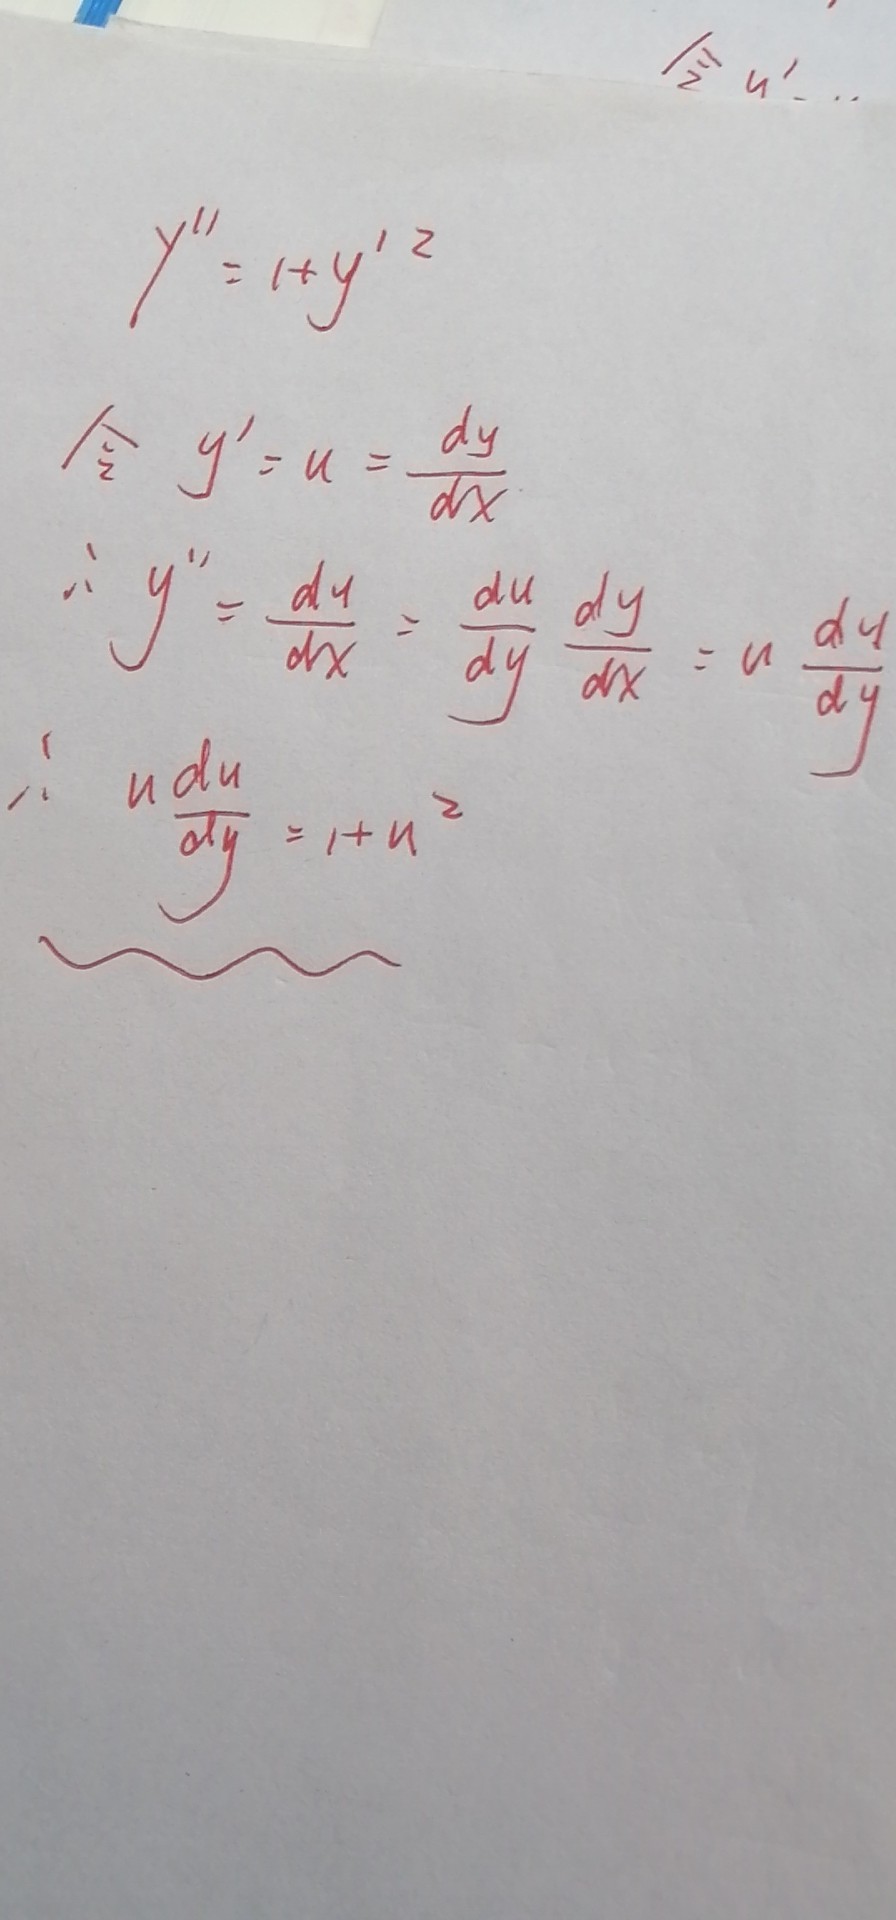 令 u'...
y'' = 1+y'²
令 y' = u = dy/dx
∴ y'' = du/dx = du/dy dy/dx = u du/dy
∴ u du/dy = 1+u²